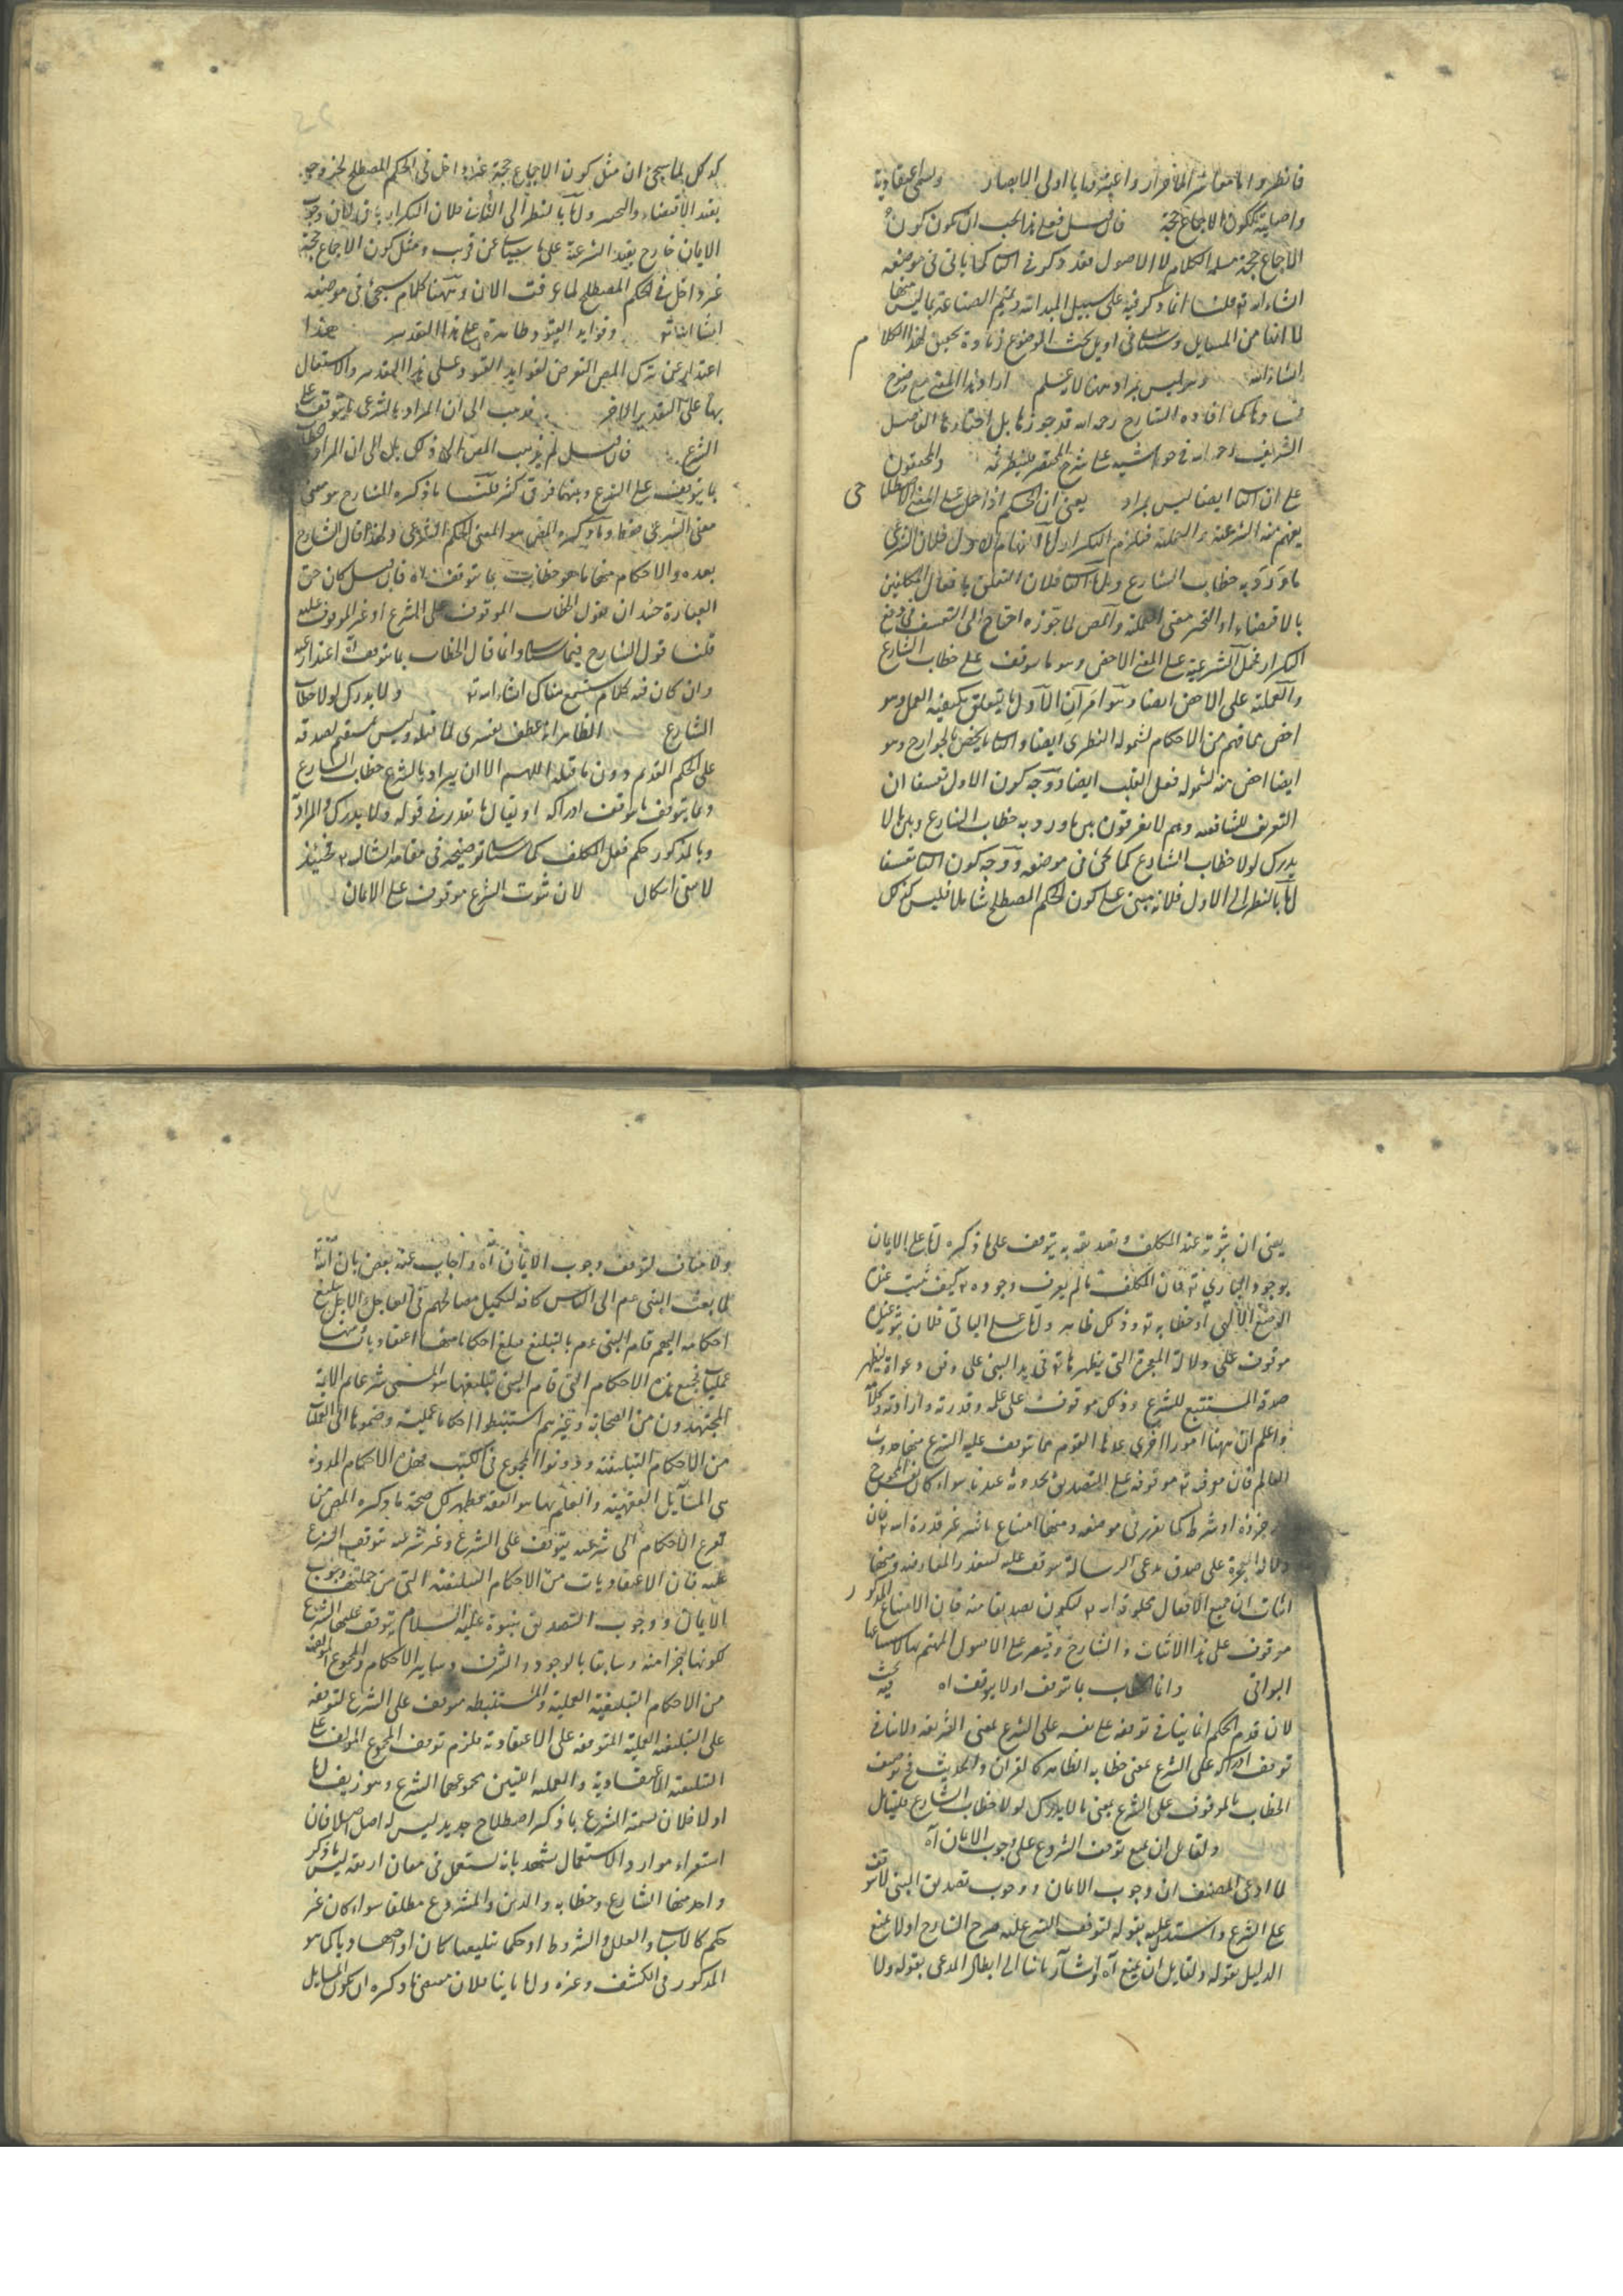 واصلية ككون الاجماع حجة فان قيل فعلى هذا يجب ان يكون كون
الاجماع حجة مسئلة الكلام لا الاصول فقد ذكر في كما ياتي في موضعه
انشاء الله تع قلنا انما ذكر فيه على سبيل المبدائية وتتميم الصناعة بما ليس منها
لا انها من المسايل وسياتي في اويل بحث الموضوع زيادة تحقيق لهذا الكلام
انشاء الله وهو ليس بمراد ههنا لا يخ اراد هذا المعنى مع وضوح
كما افاده الشارح رحمه الله قد جوزها بل اختارها الفاضل
الشريف رحمه الله في حواشيه على شرح المختصر والمحققون
على ان ايضا ليس بمراد يعنى ان الحكم اذا حمل على المعنى الاصطلاحى
يفهم منه الشرعية و العملية فيلزم التكرار اما انهام الاول فلان الشرعى
ما ورد به خطاب الشارع واما فلان التعلق بافعال المكلفين
بالاقتضاء او التخيير معنى العملية والمص لما جوزه احتاج الى التعسف في دفع
التكرار فحمل الشرعية على المعنى الاخص وهو ما يتوقف على خطاب الشارع
والعملية على الاخص ايضا وهو امران الاول ما يتعلق بكيفية العمل وهو
اخص مما فهم من الاحكام لشموله النظرى ايضا و ما يختص بالجوارح وهو
ايضا اخص منه لشموله فعل القلب ايضا ووجه كون الاول تعسفا ان
التعريف للشافعية وهم لا يفرقون بين ما ورد به خطاب الشارع وبين ما لا
يدرك لولا خطاب الشارع كما يجئ في موضعه ووجه كون تعسفا
اما بالنظر الى الاول فلانه مبنى على كون الحكم المصطلح شاملا وليس كذلك
كذلك لما سيجئ ان مثل كون الاجماع حجة غير داخل في الحكم المصطلح لخروجه
بقيد الاقتضاء والتخيير واما بالنظر الى الثانى فلان التكرار وجوب
الايمان خارج بقيد الشرعية على ما سياتى عن قريب ومثل كون الاجماع حجة
غير داخل في الحكم المصطلح لما عرفت الان وههنا كلام سيجئ في موضعه
انشا الله تع وفوايد القيود ظاهرة على هذا التقدير هذا
اعتذار عن ترك المص التعرض لفوايد القيود على هذا التقدير والاشتغال
بها على التقدير الاخر ذهب الى ان المراد بالشرعى ما يتوقف على
الشرع فان قيل لم يذهب المص الى ذلك بل الى ان المراد
ما يتوقف على الشرع وبينهما فرق كثير قلنا ما ذكره الشارح هو معنى
معنى الشرعى فقط وما ذكره المص هو المعنى الحكم الشرعى ولهذا قال الشارح
بعده والاحكام منها ما هو خطاب بما يتوقف اه فان قيل كان حق
العبارة حينئذ ان يقول الخطاب الموقوف على الشرع او غير الموقوف عليه
قلنا قول الشارح فيما سياتى وانما قال الخطاب بما يتوقف اه اعتذار عنه
وان كان فيه كلام ستسمع هناك انشاء الله تع ولما يدرك لولا خطاب
الشارع الظاهر انه عطف تفسيرى لما قبله وليس بمستقيم لصدقه
على الحكم القديم دون ما قبله اللهم الا ان يراد بالشرع خطاب الشارع
وبما يتوقف ما يتوقف ادراكه او يقال ما تقدر في قوله ولما يدرك
وبالمذكور حكم فعل المكلف كما سياتى توضيحه في مقامه انشا الله تع فحينئذ
لا يبقى اشكال لان ثبوت الشرع موقوف على الايمان
يعنى ان ثبوته عند المكلف وتصديقه به يتوقف على ما ذكره اما على الايمان
بوجود البارى تع فان المكلف ما لم يعرف وجوده تع كيف يثبت عنده
الوضع الالهى او خطابه تع وذلك ظاهر واما على الباقى فلان ثبوته عنده
موقوف على دلالة المعجزة التى يظهرها تع في يد النبى على وفق دعواه ليظهر
صدقه المستتبع للشرع وذلك موقوف على علمه وقدرته وارادته وكلامه
واعلم ان ههنا امورا اخرى عدها القوم مما توقف عليه الشرع منها حدوث
العالم فان موقوفة على التصديق بحدوثه عندنا سواء كان المحوج
جزؤه او شرط كما تقرر في موضعه ومنها امتناع تاثير غير قدرة الله تع فان
دلالة المعجزة على صدق مدعى الرسالة موقوف عليه لتعذر المعارضة ومنها
اثبات ان جميع الافعال مخلوقة لله تع ليكون تصديقا منه فان الامتناع المذكور
موقوف على هذا الاثبات والشارح وقصر على الاصول المهتم بها
البواقى وانما الخطاب بما يتوقف او لا يتوقف اه فيه بحث
لان قدم الحكم انما ينافي توقفه على نفسه على الشرع بمعنى الشريعة ولا ينافي
توقف ادراكه على الشرع بمعنى خطابه الظاهر كالقران والحديث فح توصف
الخطاب بالموقوف على الشرع بمعنى ما لا يدرك لولا خطاب الشارع فليتامل
ولقايل ان يمنع توقف الشروع على وجوب الايمان اه
لما ادعى المصنف ان وجوب الايمان ووجوب تصديق النبى لا يتوقف
على الشرع واستدل عليه بقوله لتوقف الشرع عليه صرح الشارح اولا بمنع
الدليل بقوله ولقايل ان يمنع اه واشار ثانيا الى ابطال المدعى بقوله ولا
ولا خفاء في توقف وجوب الايمان اه واجاب عنه بعض بان الله تع
لما بعث النبى عم الى الناس كافة لتكميل مصالحهم في العاجل والاجل
احكامه اليهم قام النبى عم بالتبليغ فبلغ احكاما منها اعتقاديات ومنها
عمليات فجميع هذه الاحكام التى قام النبى بتبليغها هو المسمى شرعا ثم الائمة
المجتهدون من الصحابة وغيرهم استنبطوا احكاما عملية وضموها الى العمليات
من الاحكام التبليغية ودونوا المجموع في الكتب فهذه الاحكام المدونة
هى المسايل الفقهية والعلم بها هو الفقه فظهر لك صحة ما ذكره المص من
تنوع الاحكام الى شرعية يتوقف على الشرع وغير شرعية يتوقف الشرع
عليه فان الاعتقاديات من الاحكام التبليغية التى من جملتها وجوب
الايمان ووجوب التصديق بنبوة عليه السلام يتوقف عليها الشرع
لكونها جزا منه وسابقا بالوجود والشرف وساير الاحكام والمجموع المؤلفة
من الاحكام التبليغية العملية والمستنبطة موقوف على الشرع لتوقفه
على التبليغية العملية المتوقفة على الاعتقادية فلزم توقف المجموع المؤلف على
التبليغية الاعتقادية والعملية اللتين مجموعهما الشرع وهو زيف اما
اولا فلان تسمية الشرع بما ذكر اصطلاح جديد ليس له اصل اصلا فان
استقراء موارد الاستعمال يشهد بانه يستعمل في معان اربعة ليس ما ذكر
واحد منها الشارع وخطابه والدين والمشروع مطلقا سواء كان غير
حكم كالاسباب والعلل والشروط او حكما تبليغيا كان او اجتهاديا كما هو
المذكور في الكشف وغيره واما ثانيا فلان مقتضى ما ذكره ان يكون المسايل